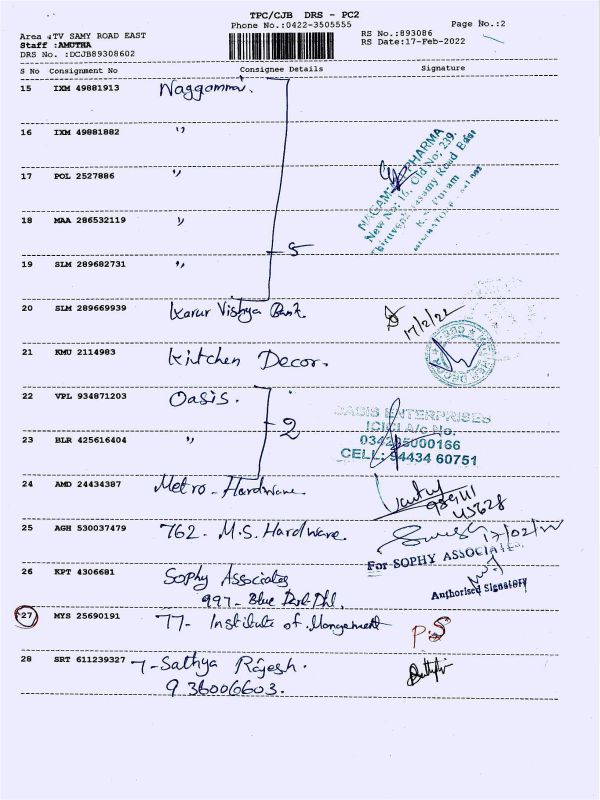 TPC/CJB DRS - PC2
Phone No.:0422-3505555
Page No.:2
Area :TV SAMY ROAD EAST
Staff :AMUTHA
DRS No. :DCJB89308602
RS No.:893086
RS Date:17-Feb-2022
S No Consignment No Consignee Details Signature
15 IXM 49881913 Naggammai.
16 IXM 49881882 "
17 POL 2527886 "
18 MAA 286532119 "
5
19 SLM 289682731 "
NAGAM PHARMA
New No: 16, Old No: 239,
Thiruvenkatasamy Road East
R.S. Puram
20 SLM 289669939 Karur Vishya Bank.
17/2/22
21 KMU 2114983 Kitchen Decor.
22 VPL 934871203 Oasis.
2
23 BLR 425616404 "
OASIS ENTERPRISES
ICICI A/c No.
034205000166
CELL: 94434 60751
24 AMD 24434387 Metro - Hardware.
45628
25 AGH 530037479 762- M.S. Hardware.
17/02/22
26 KPT 4306681 Sophy Associates
997-
For SOPHY ASSOCIATES,
Authorised Signatory
27 MYS 25690191 77- Institute of Mangement
28 SRT 611239327 7-Sathya Rajesh.
9360066603.